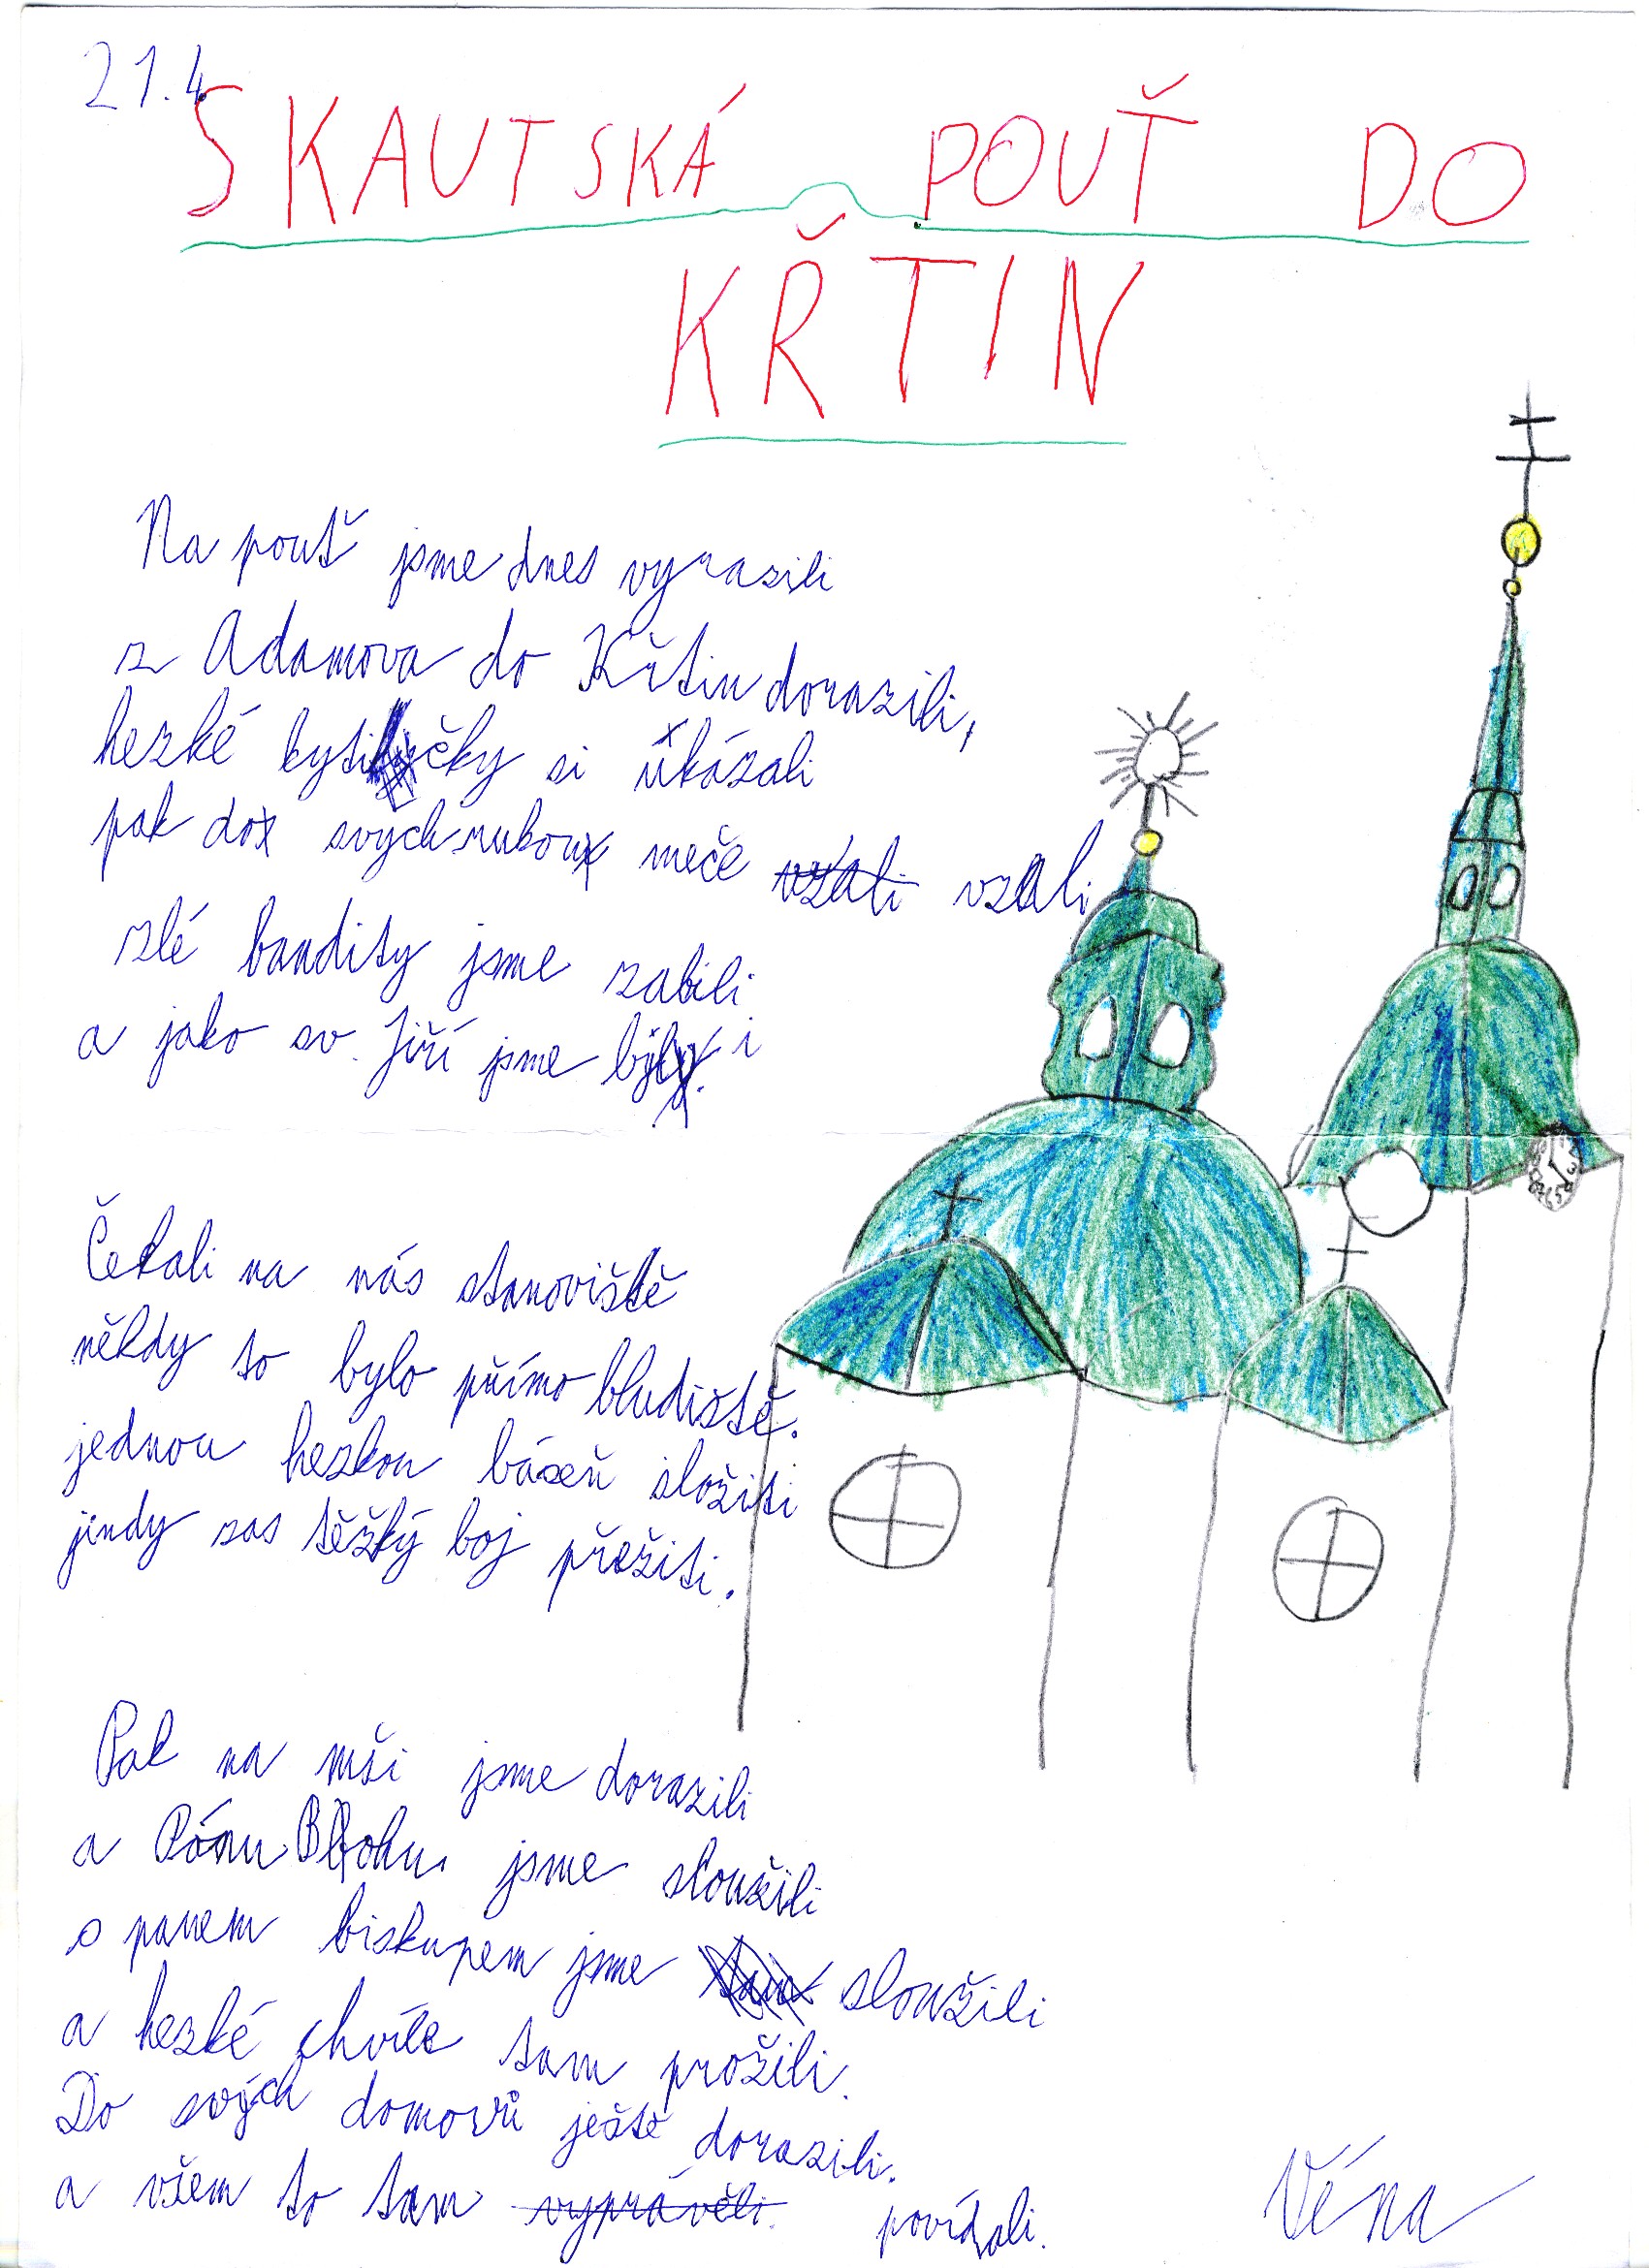 21.4.
SKAUTSKÁ POUŤ DO
KŘTIN
Na pouť jsme dnes vyrazili
z Adamova do Křtin dorazili,
hezké kytičky si ukázali
pak do svých rukou meče vzali vzali
zlé bandity jsme zabili
a jako sv. Jiří jsme byli
Čekali na nás stanoviště
někdy to bylo přímo bludiště.
jednou hezkou báseň složiti
jindy zas těžký boj přežiti.
Pak na mši jsme dorazili
a Pánu Bohu jsme sloužili
s panem biskupem jsme sloužili
a hezké chvíle tam prožili.
Do svých domovů ještě dorazili.
a všem to tam vyprávěli. povídali.
Véna